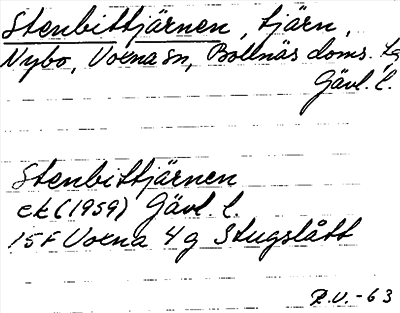 Stenbittjärnen, tjärn,
Nybo, Voxna sn, Bollnäs doms. tg
Gävl. l.
Stenbittjärnen
ek (1959) Gävl. l.
15F Voxna 4g Stugslått
R.U. -63